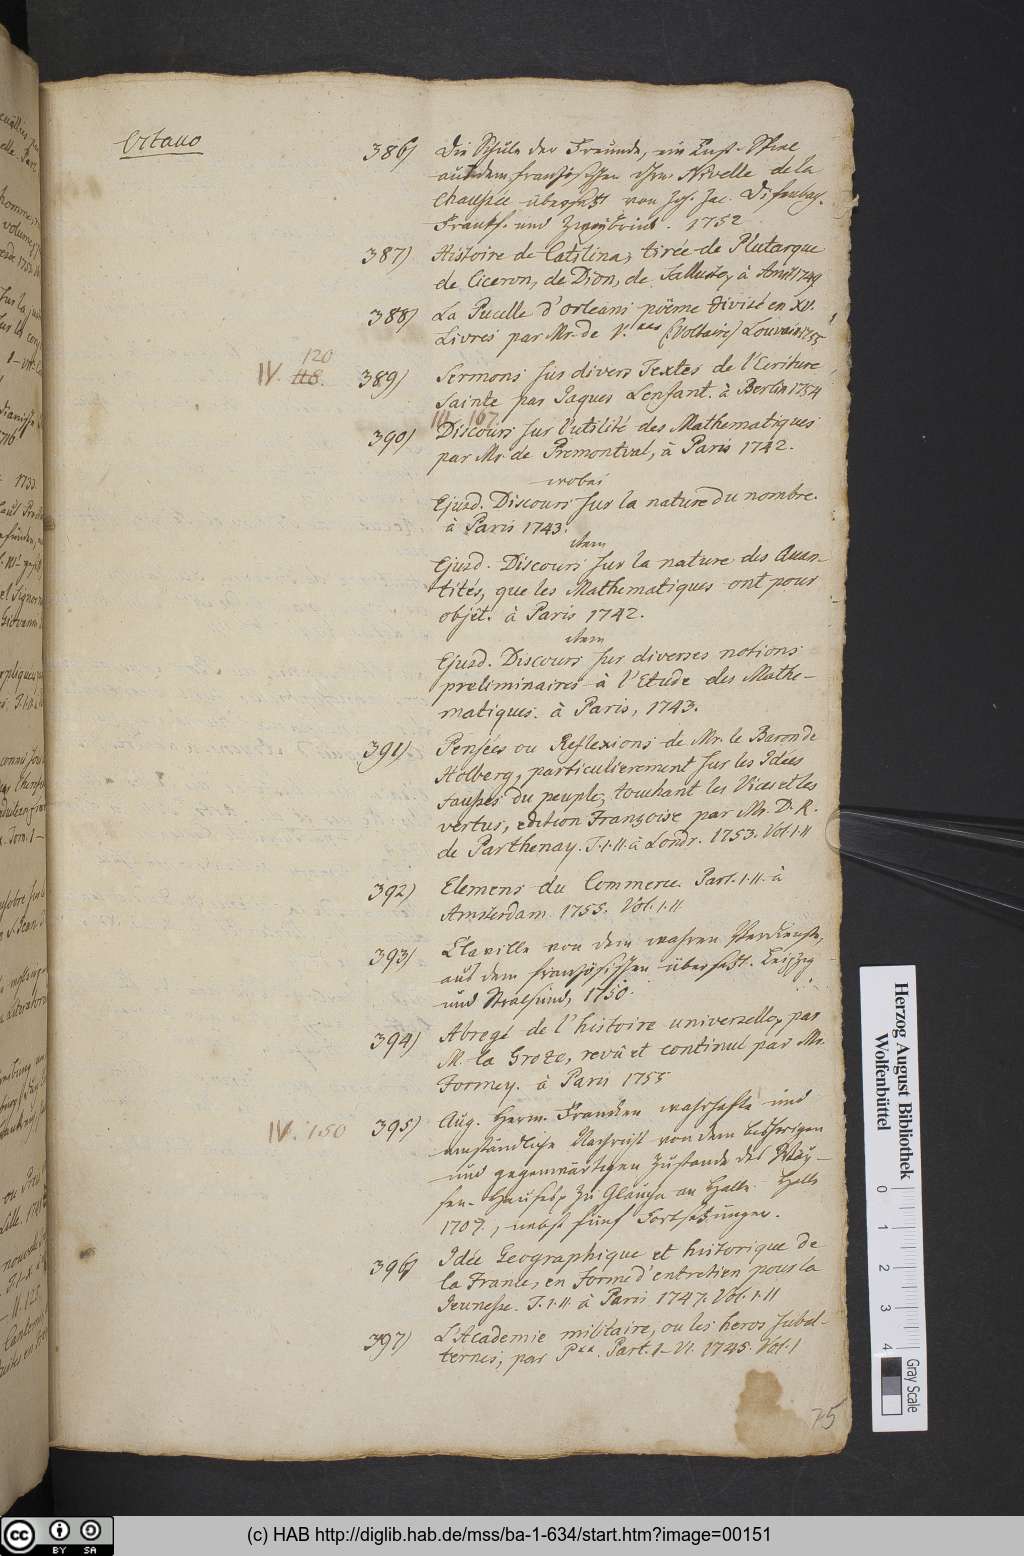 Octavo
386) Die Schule der Freunde, ein Lust-Spiel
aus dem französischen Hrn. Nivelle de la
Chaussee übersetzt von Joh. Jac.
Franckf. und 1752
387) Histoire de Catilina, tirée de Plutarque
de Ciceron, de Dion, de Salluste, à Amst 1749
388) La Pucelle d'orleans poëme divisé en XV.
Livres par Mr. de V.*** (Voltaire) Louvain 1755
120
IV. 118.
389) Sermons sur divers Textes de l'Ecriture
Sainte par Jaques Lenfant. à Berlin 1754
III. 167
390) Discours sur l'utilité des Mathematiques
par Mr. de Premontval, à Paris 1742.
wobei
Ejusd. Discours sur la nature du nombre.
à Paris 1743.
item
Ejusd. Discours sur la nature des Quan-
tités, que les Mathematiques ont pour
objét. à Paris 1742.
item
Ejusd. Discours sur diverses notions
preliminaires à l'Etude des Mathe-
matiques. à Paris, 1743.
391) Pensées ou Reflexions de Mr. le Baron de
Holberg, particulierement sur les Idées
fausses du peuple, touchant les Vices et les
vertus, edition Françoise par Mr. D. R.
de Parthenay. T. I. II. à Londr. 1753. Vol. I. II
392) Elemens du Commerce. Part. I. II. à
Amsterdam 1755. Vol. I. II
393) Claville von dem wahren Verdienste,
aus dem französischen übersetzt. Leipzig
und Stralsund, 1750.
394) Abregé de l'histoire universelle, par
M. la Croze, revû et continué par Mr.
Formey. à Paris 1755
IV. 150
395) Aug. Herm. Francken wahrhafte und
umständliche Nachricht von dem bisherigen
und gegenwärtigen Zustande des Way-
sen-Hauses, zu Glaucha an Halle. Halle
1709., nebst fünf Fortsetzungen.
396) Idée Geographique et historique de
la France, en forme d'entretien pour la
Jeunesse. T. I. II. à Paris 1747. Vol. I. II
397) L'Academie militaire, ou les heros subal-
ternes, par P**. Part. I-VI. 1745. Vol. I
75
Herzog August Bibliothek
Wolfenbüttel
0 1 2 3 4
Gray Scale
cc BY SA
(c) HAB http://diglib.hab.de/mss/ba-1-634/start.htm?image=00151